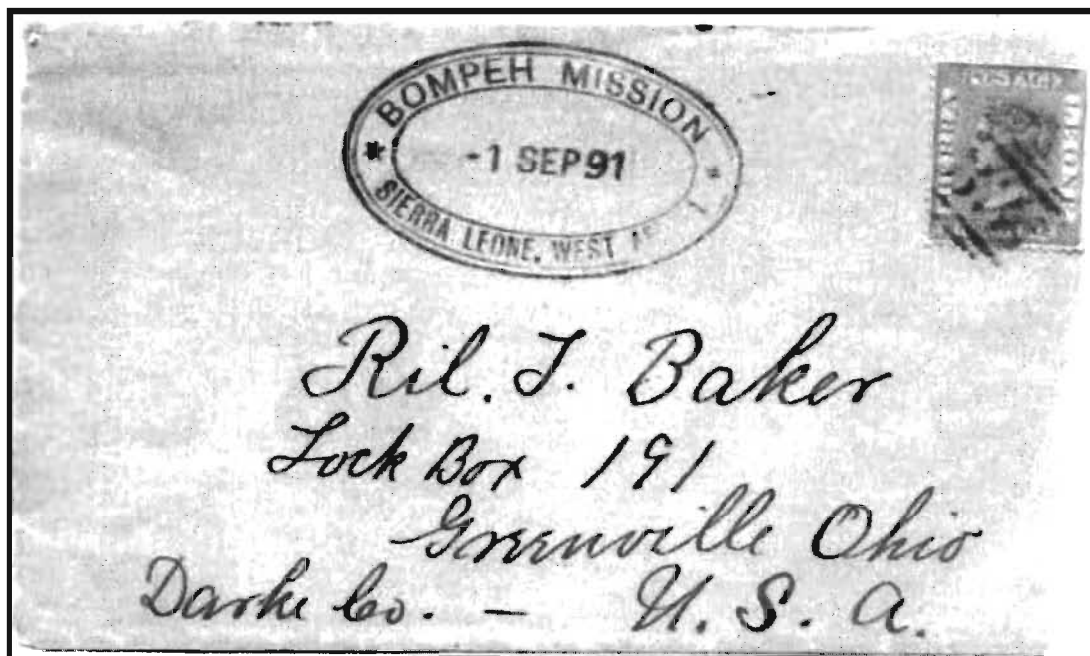 BOMPEH MISSION
-1 SEP 91
SIERRA LEONE, WEST
POSTAGE
SIERRA
LEONE
Ril. T. Baker
Lock Box 191
Greenville Ohio
Darke Co. — U. S. A.